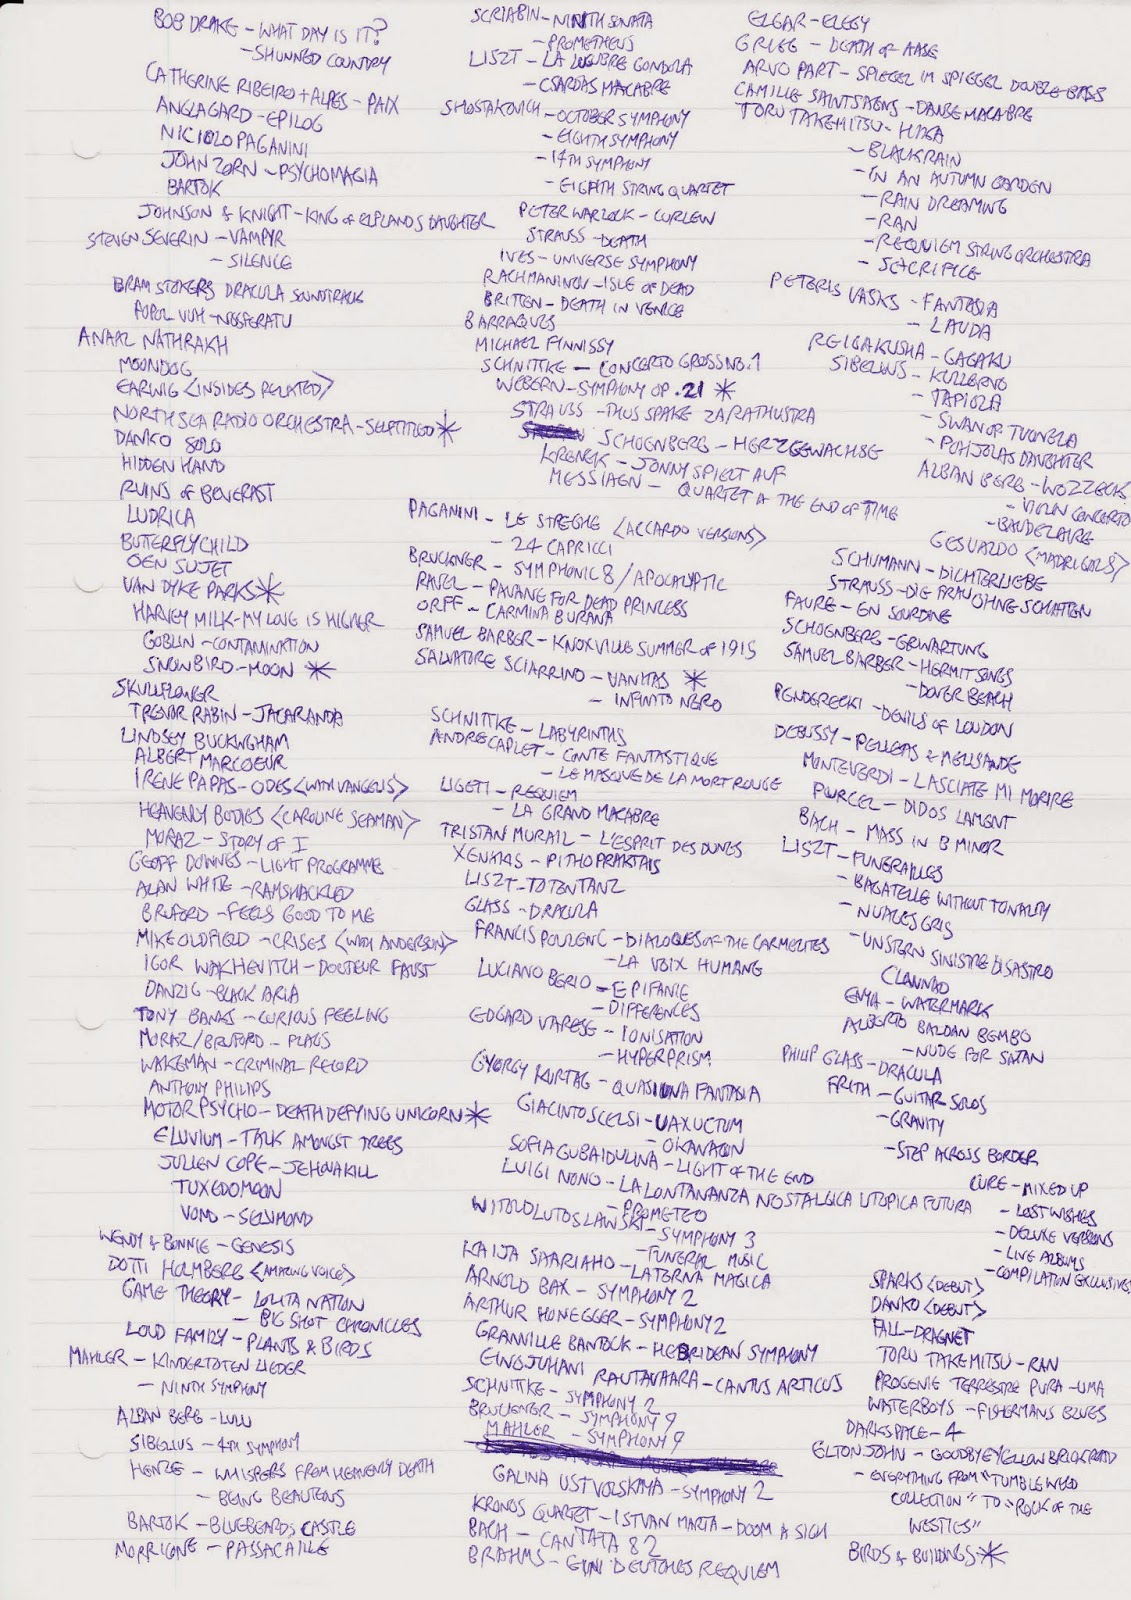 BOB DRAKE - WHAT DAY IS IT?
- SHUNNED COUNTRY
CATHERINE RIBEIRO + ALPES - PAIX
ANGLAGARD - EPILOG
NICIOLO PAGANINI
JOHN ZORN - PSYCHOMAGIA
BARTOK
JOHNSON & KNIGHT - KING OF ELPLANDS DAUGHTER
STEVEN SEVERIN - VAMPYR
- SILENCE
BRAM STOKERS DRACULA SOUNDTRACK
POPOL VUH - NOSFERATU
ANAAL NATHRAKH
MOONDOG
EARWIG <INSIDES RELATED>
NORTH SEA RADIO ORCHESTRA - SELFTITLED *
DANKO SOLO
HIDDEN HAND
RUINS OF BEVERAST
LUDRICA
BUTTERFLYCHILD
OEN SUJET
VAN DYKE PARKS *
HARVEY MILK - MY LOVE IS HIGHER
GOBLIN - CONTAMINATION
SNOWBIRD - MOON *
SKULLFLOWER
TREVOR RABIN - JACARANDA
LINDSEY BUCKINGHAM
ALBERT MARCOEUR
IRENE PAPAS - ODES <WITH VANGELIS>
HEAVENLY BODIES <CAROLINE SEAMAN>
MORAZ - STORY OF I
GEOFF DOWNES - LIGHT PROGRAMME
ALAN WHITE - RAMSHACKLED
BRUFORD - FEELS GOOD TO ME
MIKE OLDFIELD - CRISES <WITH ANDERSON>
IGOR WAKHEVITCH - DOCTEUR FAUST
DANZIG - BLACK ARIA
TONY BANKS - CURIOUS FEELING
MORAZ/BRUFORD - FLAGS
WAKEMAN - CRIMINAL RECORD
ANTHONY PHILIPS
MOTORPSYCHO - DEATH DEFYING UNICORN *
ELUVIUM - TALK AMONGST TREES
JULIEN COPE - JEHOVAKILL
TUXEDOMOON
VOND - SELVMOND
WENDY & BONNIE - GENESIS
DOTTI HOLMBERG <AMAZING VOICE>
GAME THEORY - LOLITA NATION
- BIG SHOT CHRONICLES
LOUD FAMILY - PLANTS & BIRDS
MAHLER - KINDERTOTEN LIEDER
- NINTH SYMPHONY
ALBAN BERG - LULU
SIBELIUS - 4TH SYMPHONY
HENZE - WHISPERS FROM HEAVENLY DEATH
- BEING BEAUTEOUS
BARTOK - BLUEBEARDS CASTLE
MORRICONE - PASSACAILLE
SCRIABIN - NINTH SONATA
- PROMETHEUS
LISZT - LA LUGUBRE GONDOLA
- CSARDAS MACABRE
SHOSTAKOVICH - OCTOBER SYMPHONY
- EIGHTH SYMPHONY
- 14TH SYMPHONY
- EIGHTH STRING QUARTET
PETER WARLOCK - CURLEW
STRAUSS - DEATH
IVES - UNIVERSE SYMPHONY
RACHMANINOV - ISLE OF DEAD
BRITTEN - DEATH IN VENICE
BARRAQUES
MICHAEL FINNISSY
SCHNITTKE - CONCERTO GROSS NO.1
WEBERN - SYMPHONY OP.21 *
STRAUSS - THUS SPAKE ZARATHUSTRA
SCHOENBERG - HERZGEWACHSE
KRENEK - JONNY SPIELT AUF
MESSIAEN - QUARTET 4 THE END OF TIME
PAGANINI - LE STREGHE <ACCARDO VERSIONS>
- 24 CAPRICCI
BRUCKNER - SYMPHONIC 8 / APOCALYPTIC
RAVEL - PAVANE FOR DEAD PRINCESS
ORFF - CARMINA BURANA
SAMUEL BARBER - KNOXVILLE SUMMER OF 1915
SALVATORE SCIARRINO - VANITAS *
- INFINITO NERO
SCHNITTKE - LABYRINTHS
ANDRE CAPLET - CONTE FANTASTIQUE
- LE MASQUE DE LA MORT ROUGE
LIGETI - REQUIEM
- LA GRAND MACABRE
TRISTAN MURAIL - L'ESPRIT DES DUNES
XENAKIS - PITHOPRAKTAIS
LISZT - TOTENTANZ
GLASS - DRACULA
FRANCIS POULENC - DIALOQUES OF THE CARMELITES
- LA VOIX HUMANG
LUCIANO BERIO - EPIFANIE
- DIFFERENCES
EDGARD VARESE - IONISATION
- HYPERPRISM
GYORGY KURTAG - QUASI UNA FANTASIA
GIACINTO SCELSI - UAXUCTUM
- OKANAGON
SOFIA GUBAIDULINA - LIGHT OF THE END
LUIGI NONO - LA LONTANANZA NOSTALGICA UTOPICA FUTURA
- PROMETEO
WITOLD LUTOSLAWSKI - SYMPHONY 3
- FUNERAL MUSIC
KAIJA SAARIAHO - LATERNA MAGICA
ARNOLD BAX - SYMPHONY 2
ARTHUR HONEGGER - SYMPHONY 2
GRANVILLE BANTOCK - HEBRIDEAN SYMPHONY
EINOJUHANI RAUTAVAARA - CANTUS ARTICUS
SCHNITTKE - SYMPHONY 2
BRUCKNER - SYMPHONY 9
MAHLER - SYMPHONY 9
GALINA USTVOLSKAYA - SYMPHONY 2
KRONOS QUARTET - ISTVAN MARTA - DOOM A SIGH
BACH - CANTATA 82
BRAHMS - EINI DEUTCHES REQUIEM
ELGAR - ELEGY
GRIEG - DEATH OF AASE
ARVO PART - SPIEGEL IM SPIEGEL DOUBLE BASS
CAMILLE SAINTSAENS - DANSE MACABRE
TORU TAKEMITSU - HIKA
- BLACK RAIN
- IN AN AUTUMN GARDEN
- RAIN DREAMING
- RAN
- REQUIEM STRING ORCHESTRA
- SACRIFICE
PETERIS VASKS - FANTASIA
- LAUDA
REIGAKUSHA - GAGAKU
SIBELIUS - KULLERVO
- TAPIOLA
- SWAN OF TUONELA
- POHJOLAS DAUGHTER
ALBAN BERG - WOZZECK
- VIOLIN CONCERTO
- BAUDELAIRE
GESUALDO <MADRIGALS>
SCHUMANN - DICHTERLIEBE
STRAUSS - DIE FRAU OHNE SCHATTEN
FAURE - EN SOURDINE
SCHOENBERG - ERWARTUNG
SAMUEL BARBER - HERMIT SONGS
- DOVER BEACH
PENDERECKI - DEVILS OF LOUDON
DEBUSSY - PELLEAS & MELISANDE
MONTEVERDI - LASCIATE MI MORIRE
PURCEL - DIDOS LAMENT
BACH - MASS IN B MINOR
LISZT - FUNERAILLES
- BAGATELLE WITHOUT TONALITY
- NUAGES GRIS
- UNSTERN SINISTRE DISASTRO
CLANNAD
ENYA - WATERMARK
ALBERTO BALDAN BEMBO
- NUDE FOR SATAN
PHILIP GLASS - DRACULA
FRITH - GUITAR SOLOS
- GRAVITY
- STEP ACROSS BORDER
CURE - MIXED UP
- LOST WISHES
- DELUXE VERSIONS
- LIVE ALBUMS
- COMPILATION EXCLUSIVES
SPARKS <DEBUT>
DANKO <DEBUT>
FALL - DRAGNET
TORU TAKEMITSU - RAN
PROGENIE TERRESTRE PURA - UMA
WATERBOYS - FISHERMANS BLUES
DARKSPACE - 4
ELTON JOHN - GOODBYE YELLOW BRICK ROAD
- EVERYTHING FROM "TUMBLEWEED
COLLECTION" TO "ROCK OF THE
WESTIES"
BIRDS & BUILDINGS *